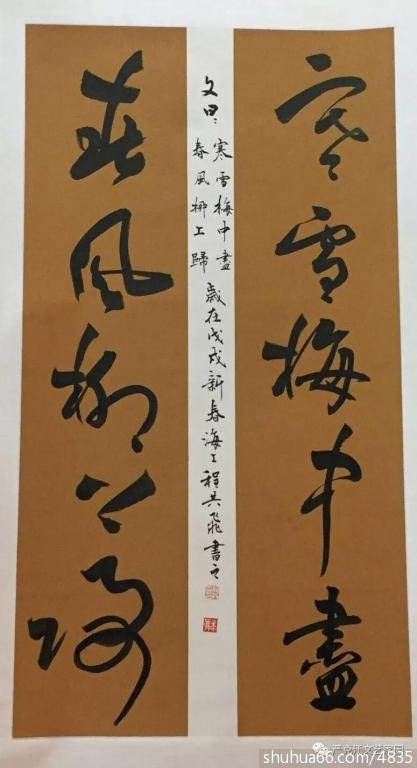 寒雪梅中盡
春風柳上歸
文曰：
寒雪梅中盡
春風柳上歸
歲在戊戌新春海上程共飛書之
严文轩文艺家园
shuhua66.com/4835